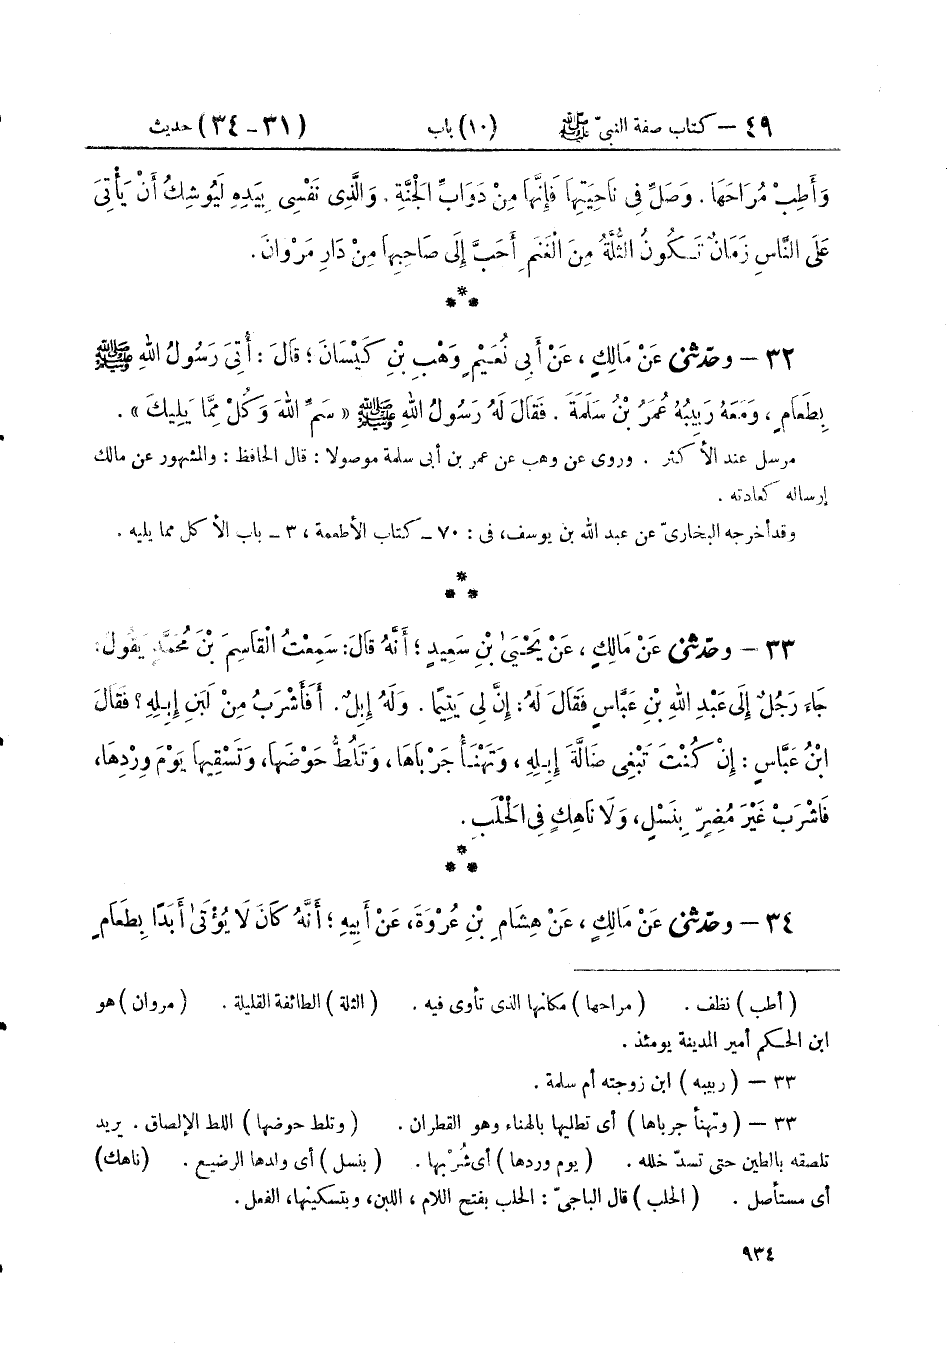 ٤٩ – كتاب صفة النبىّ ﷺ (١٠) باب (٣١-٣٤) حديث
وَأَطِبْ مُرَاحَهَا . وَصَلِّ فِى نَاحِيَتِهَا فَإِنَّهَا مِنْ دَوَابِّ الْجَنَّةِ . وَالَّذِى نَفْسِى بِيَدِهِ لَيُوشِكُ أَنْ يَأْتِىَ
عَلَى النَّاسِ زَمَانٌ تَكُونُ الثُّلَّةُ مِنَ الْغَنَمِ أَحَبَّ إِلَى صَاحِبِهَا مِنْ دَارِ مَرْوَانَ .
***
٣٢ – وحدّثنى عَنْ مَالِكٍ ، عَنْ أَبِى نُعَيْمٍ وَهْبِ بْنِ كَيْسَانَ ؛ قَالَ : أُتِىَ رَسُولُ اللهِ ﷺ
بِطَعَامٍ ، وَمَعَهُ رَبِيبُهُ عُمَرُ بْنُ سَلَمَةَ . فَقَالَ لَهُ رَسُولُ اللهِ ﷺ « سَمِّ اللهَ وَكُلْ مِمَّا يَلِيكَ » .
مرسل عند الأكثر . وروى عن وهب عن عمر بن أبى سلمة موصولا : قال الحافظ : والمشهور عن مالك
إرساله كعادته .
وقد أخرجه البخارىّ عن عبد الله بن يوسف، فى : ٧٠ ــ كتاب الأطعمة ، ٣ ــ باب الأكل مما يليه .
***
٣٣ – وحدّثنى عَنْ مَالِكٍ ، عَنْ يَحْيَىٰ بْنِ سَعِيدٍ ؛ أَنَّهُ قَالَ: سَمِعْتُ الْقَاسِمَ بْنَ مُحَمَّدٍ يَقُولُ:
جَاءَ رَجُلٌ إِلَى عَبْدِ اللهِ بْنِ عَبَّاسٍ فَقَالَ لَهُ: إِنَّ لِى يَتِيمًا . وَلَهُ إِبِلٌ . أَفَأَشْرَبُ مِنْ لَبَنِ إِبِلِهِ ؟ فَقَالَ
ابْنُ عَبَّاسٍ : إِنْ كُنْتَ تَبْغِى ضَالَّةَ إِبِلِهِ ، وَتَهْنَأُ جَرْبَاهَا، وَتَلُطُّ حَوْضَهَا، وَتَسْقِيهَا يَوْمَ وِرْدِهَا،
فَاشْرَبْ غَيْرَ مُضِرٍّ بِنَسْلٍ، وَلَا نَاهِكٍ فِى الْحَلْبِ .
***
٣٤ – وحدّثنى عَنْ مَالِكٍ ، عَنْ هِشَامِ بْنِ عُرْوَةَ، عَنْ أَبِيهِ ؛ أَنَّهُ كَانَ لَا يُؤْتَىٰ أَبَدًا بِطَعَامٍ
( أطب ) نظف . ( مراحها ) مكانها الذى تأوى فيه . ( الثلة ) الطائفة القليلة . ( مروان ) هو
ابن الحكم أمير المدينة يومئذ .
٣٣ – ( ربيبه ) ابن زوجته أم سلمة .
٣٣ – ( وتهنأ جرباها ) أى تطليها بالهناء وهو القطران . ( وتلط حوضها ) اللط الإلصاق . يريد
تلصقه بالطين حتى تسدّ خلله . ( يوم وردها ) أى شُرْبها . ( بنسل ) أى ولدها الرضيع . (ناهك)
أى مستأصل . ( الحلب ) قال الباجىّ : الحلب بفتح اللام ، اللبن، وبتسكينها، الفعل .
٩٣٤